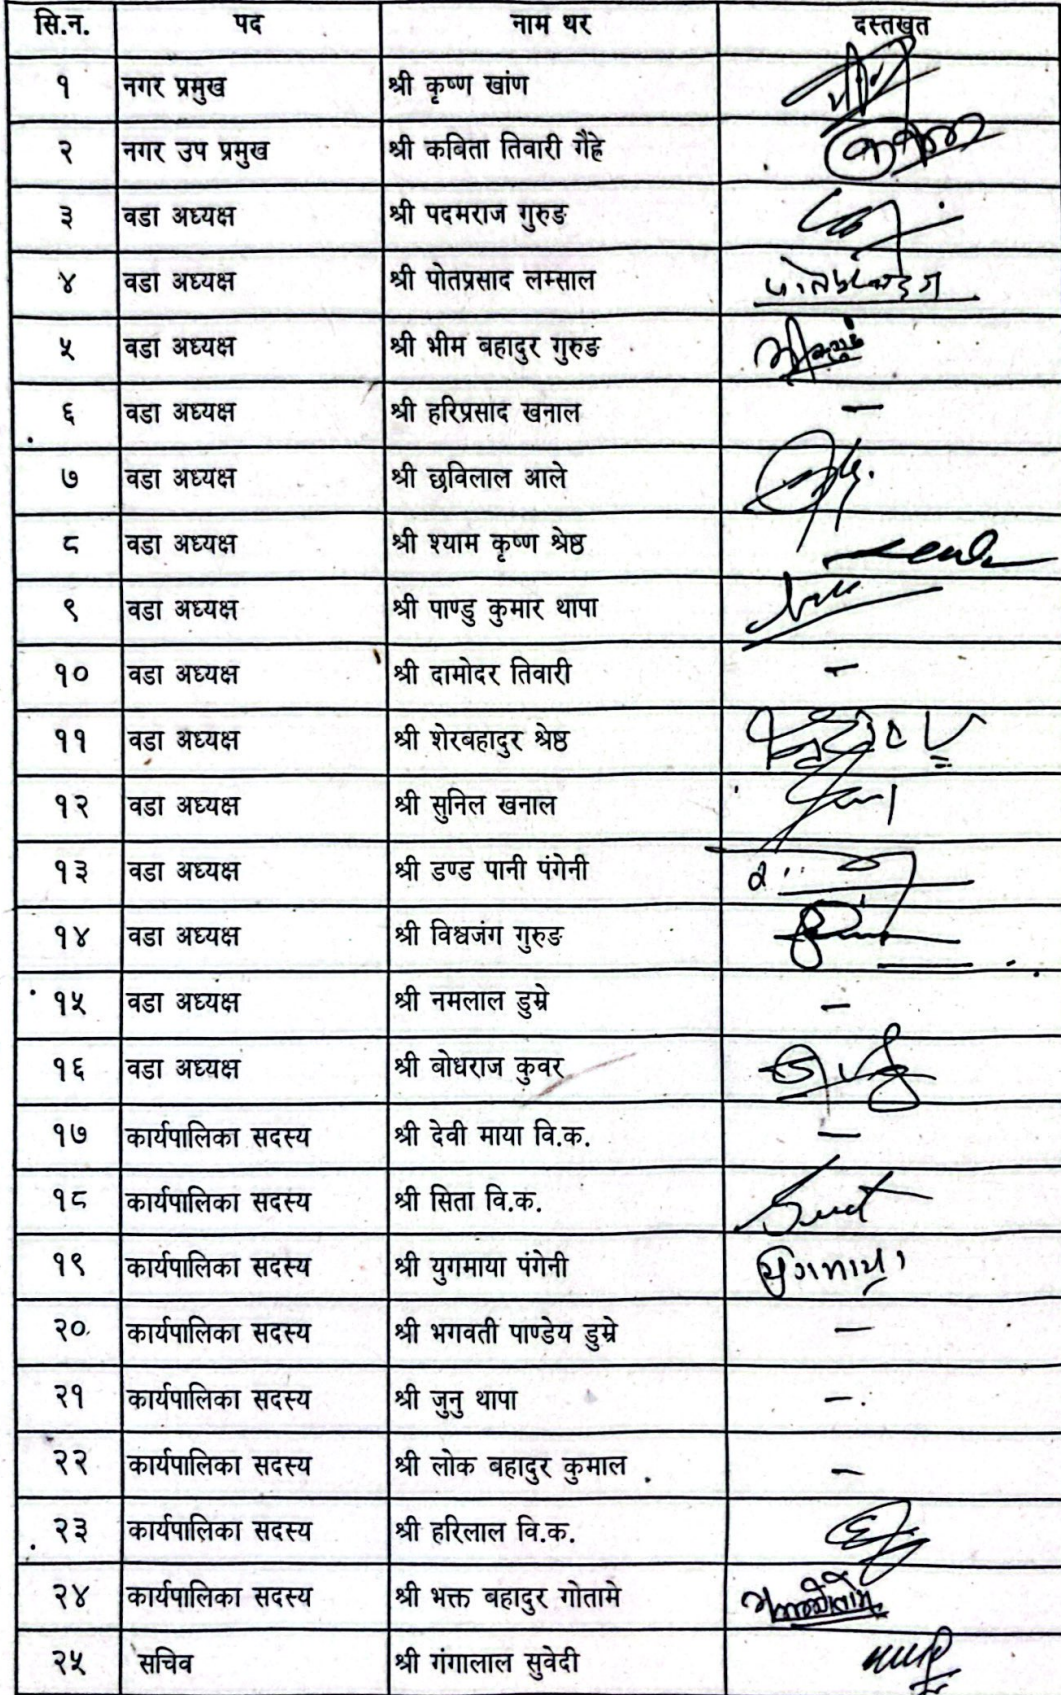 सि.न. पद नाम थर दस्तखुत
१ नगर प्रमुख श्री कृष्ण खांण
२ नगर उप प्रमुख श्री कबिता तिवारी गैह्रे
३ वडा अध्यक्ष श्री पदमराज गुरुङ
४ वडा अध्यक्ष श्री पोतप्रसाद लम्साल
५ वडा अध्यक्ष श्री भीम बहादुर गुरुङ
६ वडा अध्यक्ष श्री हरिप्रसाद खनाल –
७ वडा अध्यक्ष श्री छविलाल आले
८ वडा अध्यक्ष श्री श्याम कृष्ण श्रेष्ठ
९ वडा अध्यक्ष श्री पाण्डु कुमार थापा
१० वडा अध्यक्ष श्री दामोदर तिवारी –
११ वडा अध्यक्ष श्री शेरबहादुर श्रेष्ठ
१२ वडा अध्यक्ष श्री सुनिल खनाल
१३ वडा अध्यक्ष श्री डण्ड पानी पंगेनी
१४ वडा अध्यक्ष श्री विश्वजंग गुरुङ
१५ वडा अध्यक्ष श्री नमलाल डुम्रे –
१६ वडा अध्यक्ष श्री बोधराज कुवर
१७ कार्यपालिका सदस्य श्री देवी माया वि.क. –
१८ कार्यपालिका सदस्य श्री सिता वि.क.
१९ कार्यपालिका सदस्य श्री युगमाया पंगेनी युगमाया
२० कार्यपालिका सदस्य श्री भगवती पाण्डेय डुम्रे –
२१ कार्यपालिका सदस्य श्री जुनु थापा –
२२ कार्यपालिका सदस्य श्री लोक बहादुर कुमाल –
२३ कार्यपालिका सदस्य श्री हरिलाल वि.क.
२४ कार्यपालिका सदस्य श्री भक्त बहादुर गोतामे
२५ सचिव श्री गंगालाल सुवेदी